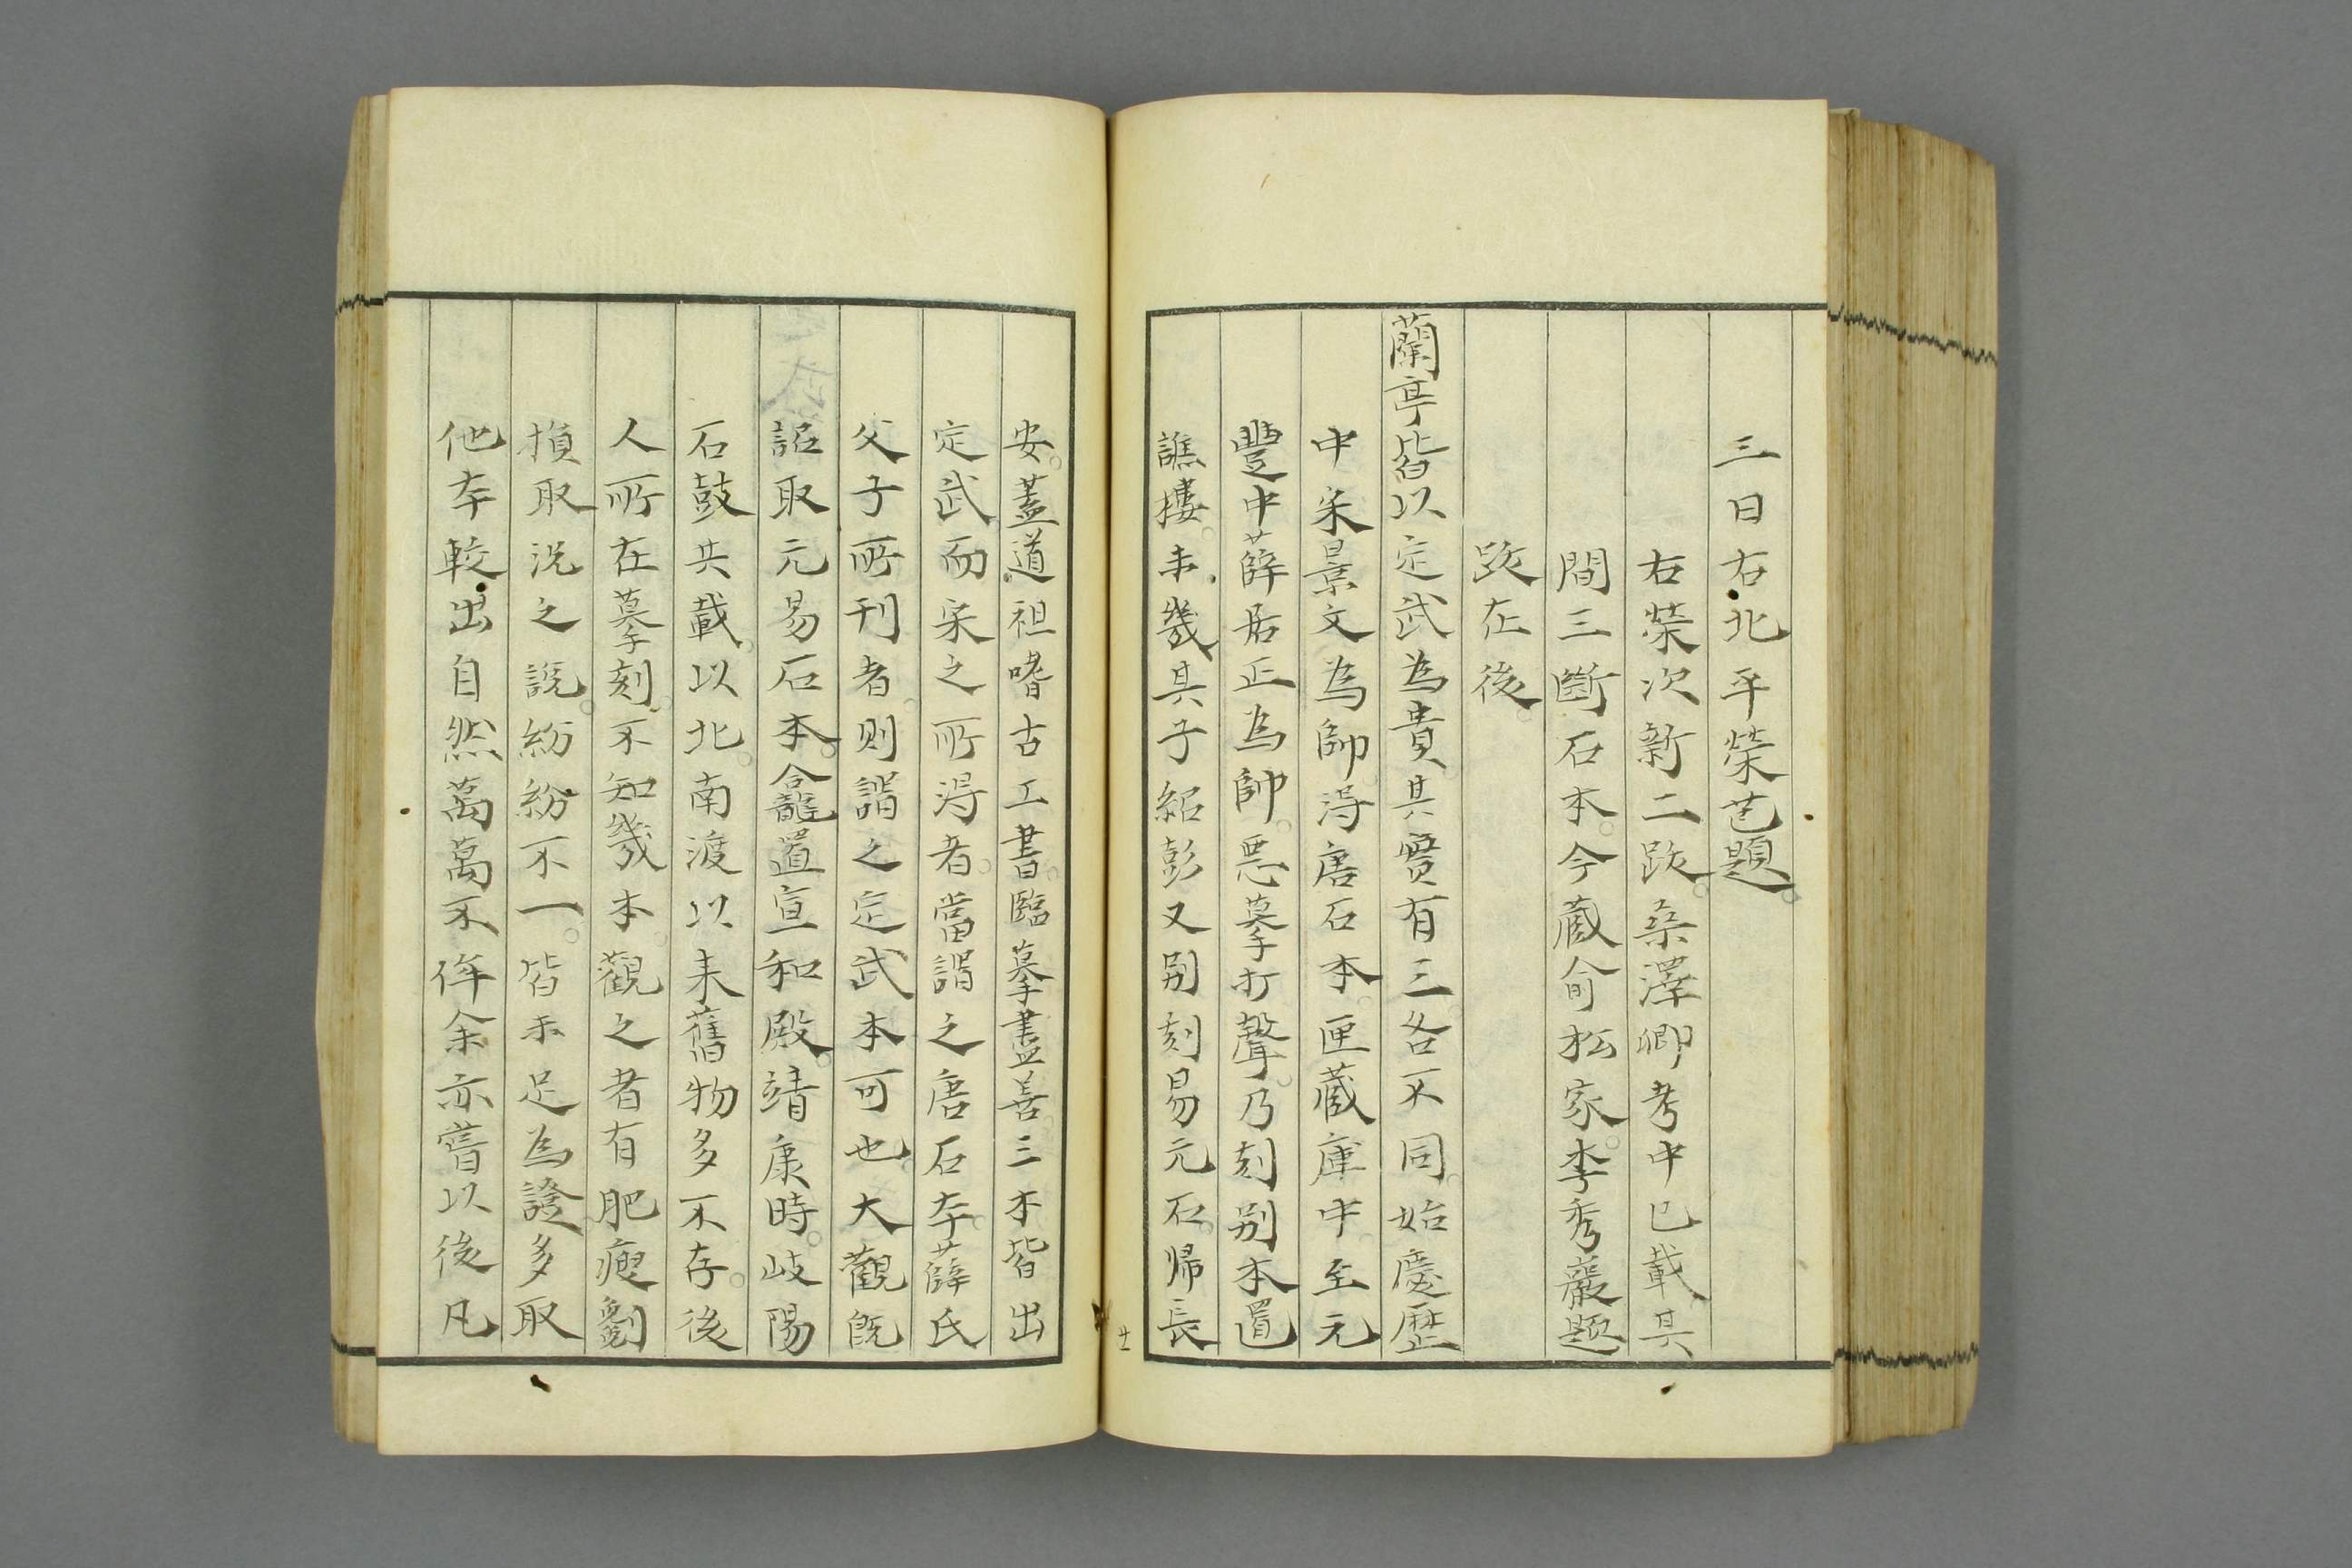 三日右北平榮芑題
右榮次新二跋桑澤卿考中已載其
間三斷石本今蔵俞松家李秀巖題
跋在後
蘭亭皆以定武為貴其實有三各不同始慶歷
中宋景文為帥得唐石本匣蔵庫中至元
豐中薛居正為帥惡摹打聲乃刻别本置
譙樓未幾其子紹彭又别刻易元石歸長
安蓋道祖嗜古工書臨摹盡善三本皆出
定武而宋之所得者當謂之唐石本薛氏
父子所刊者則謂之定武本可也大觀既
詔取元易石本龕置宣和殿靖康時岐陽
石鼓共載以北南渡以来舊物多不存後
人所在摹刻不知幾本觀之者有肥瘦劉
損取況之說紛紛不一皆未足為證多取
他本較出自然萬萬不侔余亦嘗以後凡